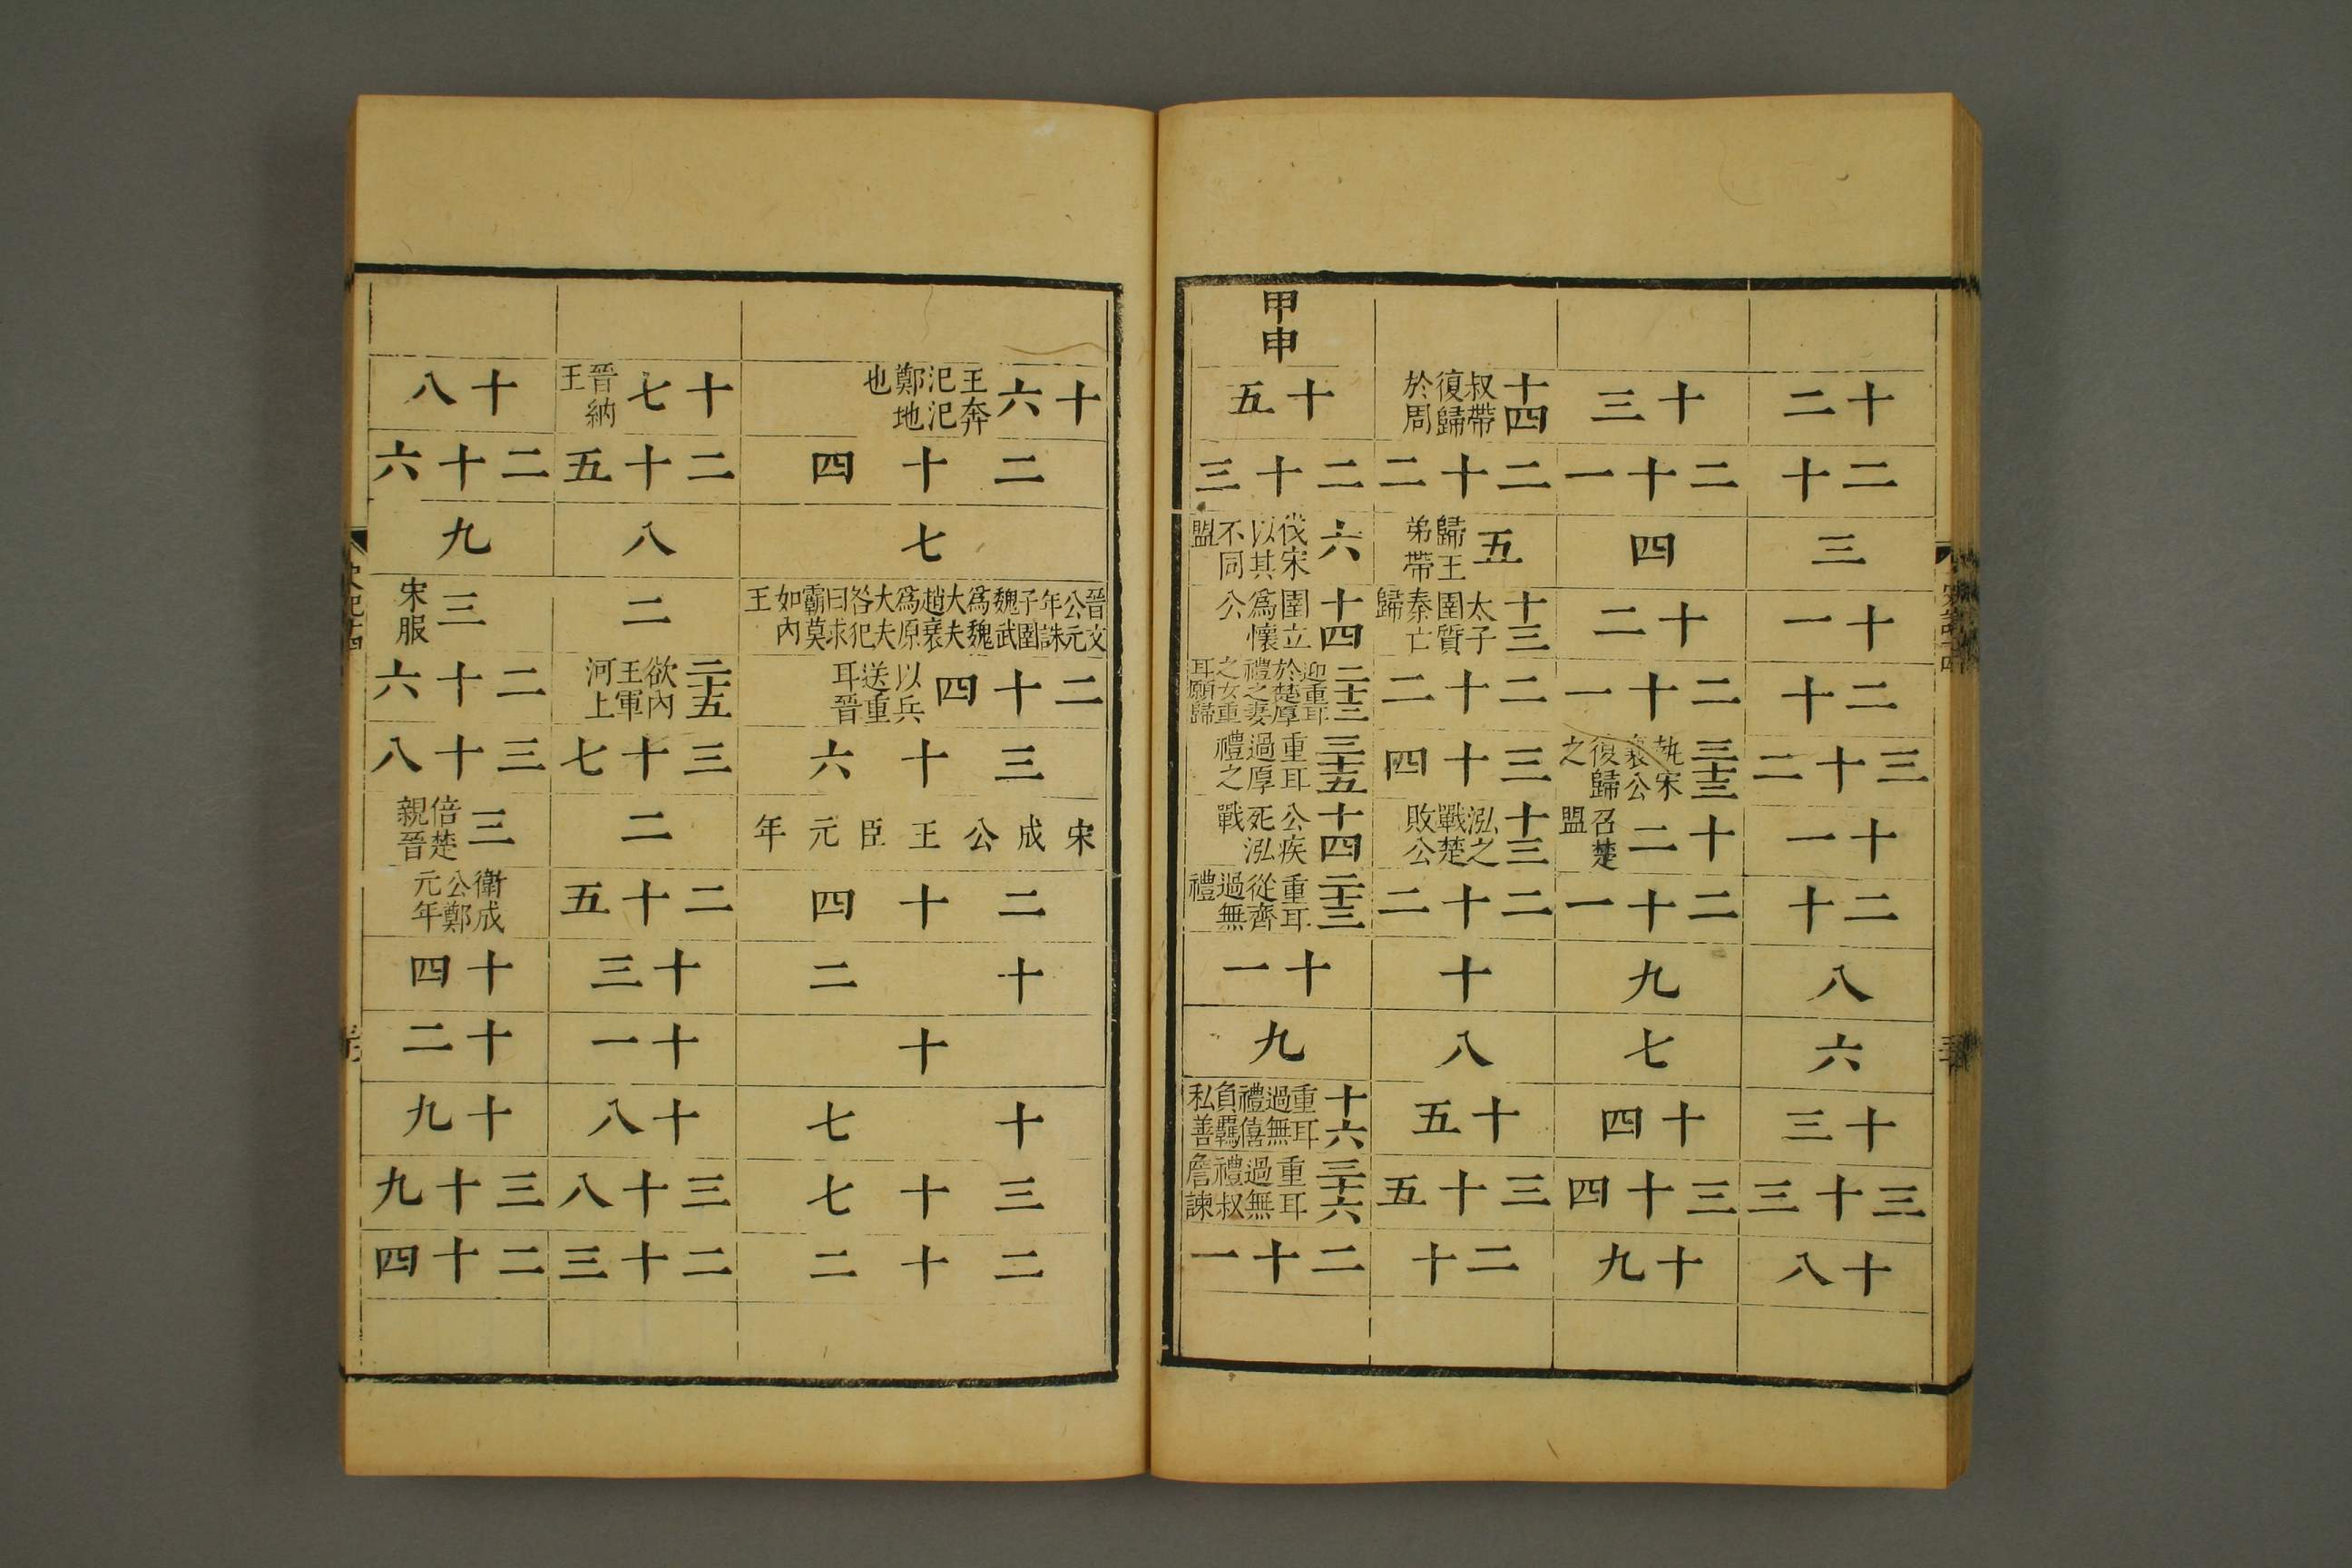 十二
二十
三
十一
二十
三十二
十一
二十
八
六
十三
三十三
十八
十三
二十一
四
十二
二十一
三十三執宋襄公復歸之
十二召楚盟
二十一
九
七
十四
三十四
十九
十四叔帶復歸於周
二十二
五歸王弟帶
十三太子圉質秦亡歸
二十二
三十四
十三泓之戰楚敗公
二十二
十
八
十五
三十五
二十
甲申
十五
二十三
六伐宋以其不同盟
十四圉立爲懷公
二十三迎重耳於楚厚禮之妻之女重耳願歸
三十五重耳過厚禮之
十四公疾死泓戰
二十三重耳從齊過無禮
十一
九
十六重耳過無禮僖負羈私善
三十六重耳過無禮叔詹諫
二十一
十六王奔氾氾鄭地也
二十四
七
晉文公元年誅子圉魏武爲魏大夫趙衰爲原大夫咎犯曰求霸莫如內王
二十四以兵送重耳晉
三十六
宋成公王臣元年
二十四
十二
十
十七
三十七
二十二
十七晉納王
二十五
八
二
二十五欲內王軍河上
三十七
二
二十五
十三
十一
十八
三十八
二十三
十八
二十六
九
三宋服
二十六
三十八
三倍楚親晉
衛成公鄭元年
十四
十二
十九
三十九
二十四